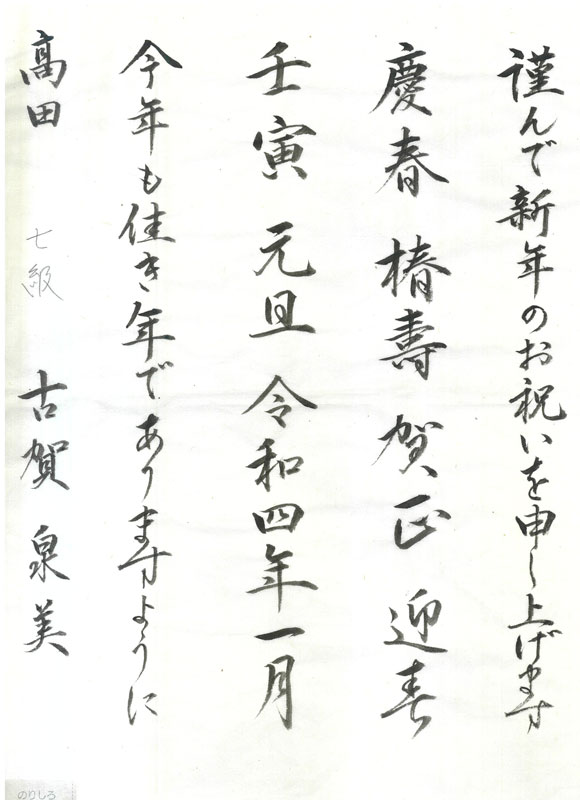 謹んで新年のお祝いを申し上げます
慶春 椿壽 賀正 迎春
壬寅 元旦 令和四年一月
今年も佳き年でありますように
髙田 七級 古賀泉美
のりしろ